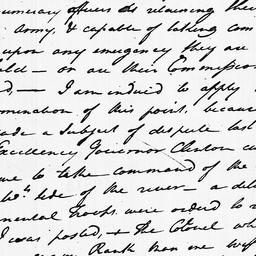 officers as retaining their
Army, & capable of taking com
upon any emergency they are
on are their Commission
I am induced to apply
mination of this point, because
ade a subject of dispute last
Excellency Governor Clinton
me to take command of the
side of the river — a de
mental troops were ordered to
I was posted, & the Colonel who
Rank than one